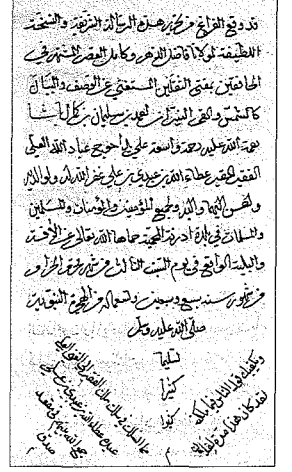 قد وقع الفراغ من تحرير هذه الرسالة الشريفة والنسخة
اللطيفة لمولانا فاضل الدهر وكامل العصر المشتهر في
الخافقين بمفتي الثقلين المستغني عن الوصف والبيان
كالشمس والقمر احمد بن سليمان بن كمال پاشا
رحمة الله عليه رحمة واسعة على يد احوج عباد الله العلي
الفقير الحقير عطاء الله بن عبدي بن علي غفر الله له ولوالديه
واحسن اليهما واليه ولجميع المؤمنين والمؤمنات والمسلمين
والمسلمات في بلدة ادرنة المحمية حماها الله تعالى عن الآفة
والبلية الواقع في يوم السبت الثالث في شهر محرم الحرام
من شهور سنة سبع وسبعين وتسعمائة من الهجرة النبوية
صلى الله عليه وسلم
تسليما
كثيرا
كثيرا